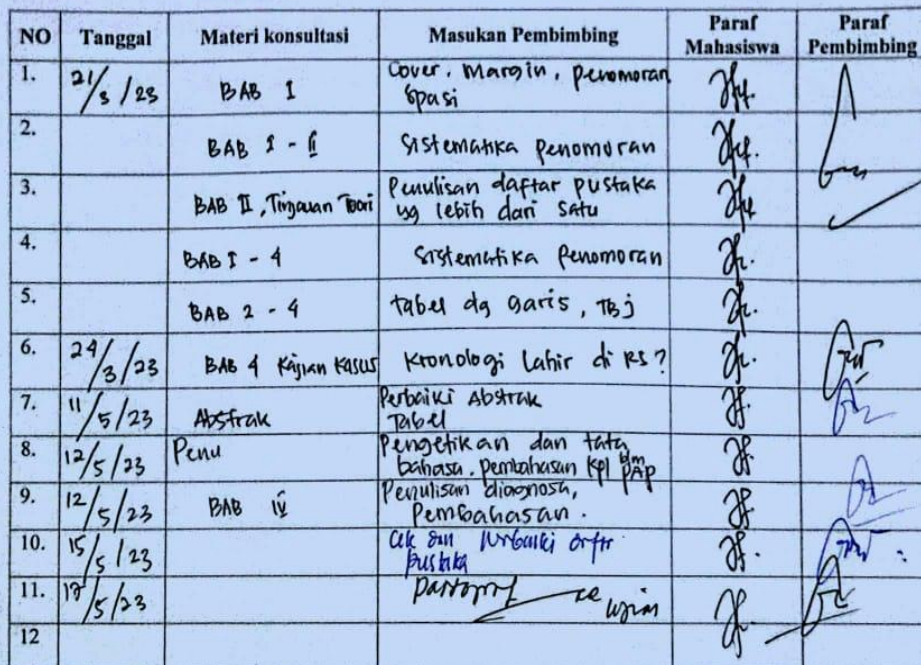 NO Tanggal Materi konsultasi Masukan Pembimbing Paraf Mahasiswa Paraf Pembimbing
1. 21/3/23 BAB I Cover, Margin, penomoran
spasi
2. BAB I - II Sistematika penomoran
3. BAB II, Tinjauan Teori Penulisan daftar pustaka
yg lebih dari satu
4. BAB I - 4 Sistematika Penomoran
5. BAB 2 - 4 tabel dg garis, TBJ
6. 24/3/23 BAB 4 Kajian Kasus Kronologi Lahir di RS?
7. 11/5/23 Abstrak Perbaiki Abstrak
Tabel
8. 12/5/23 Penu Pengetikan dan tata
bahasa, pembahasan kpl blm PAP
9. 12/5/23 BAB IV Penulisan diagnosa,
Pembahasan.
10. 15/5/23 Cek dan perbaiki
pustaka
11. 17/5/23 ujian
12